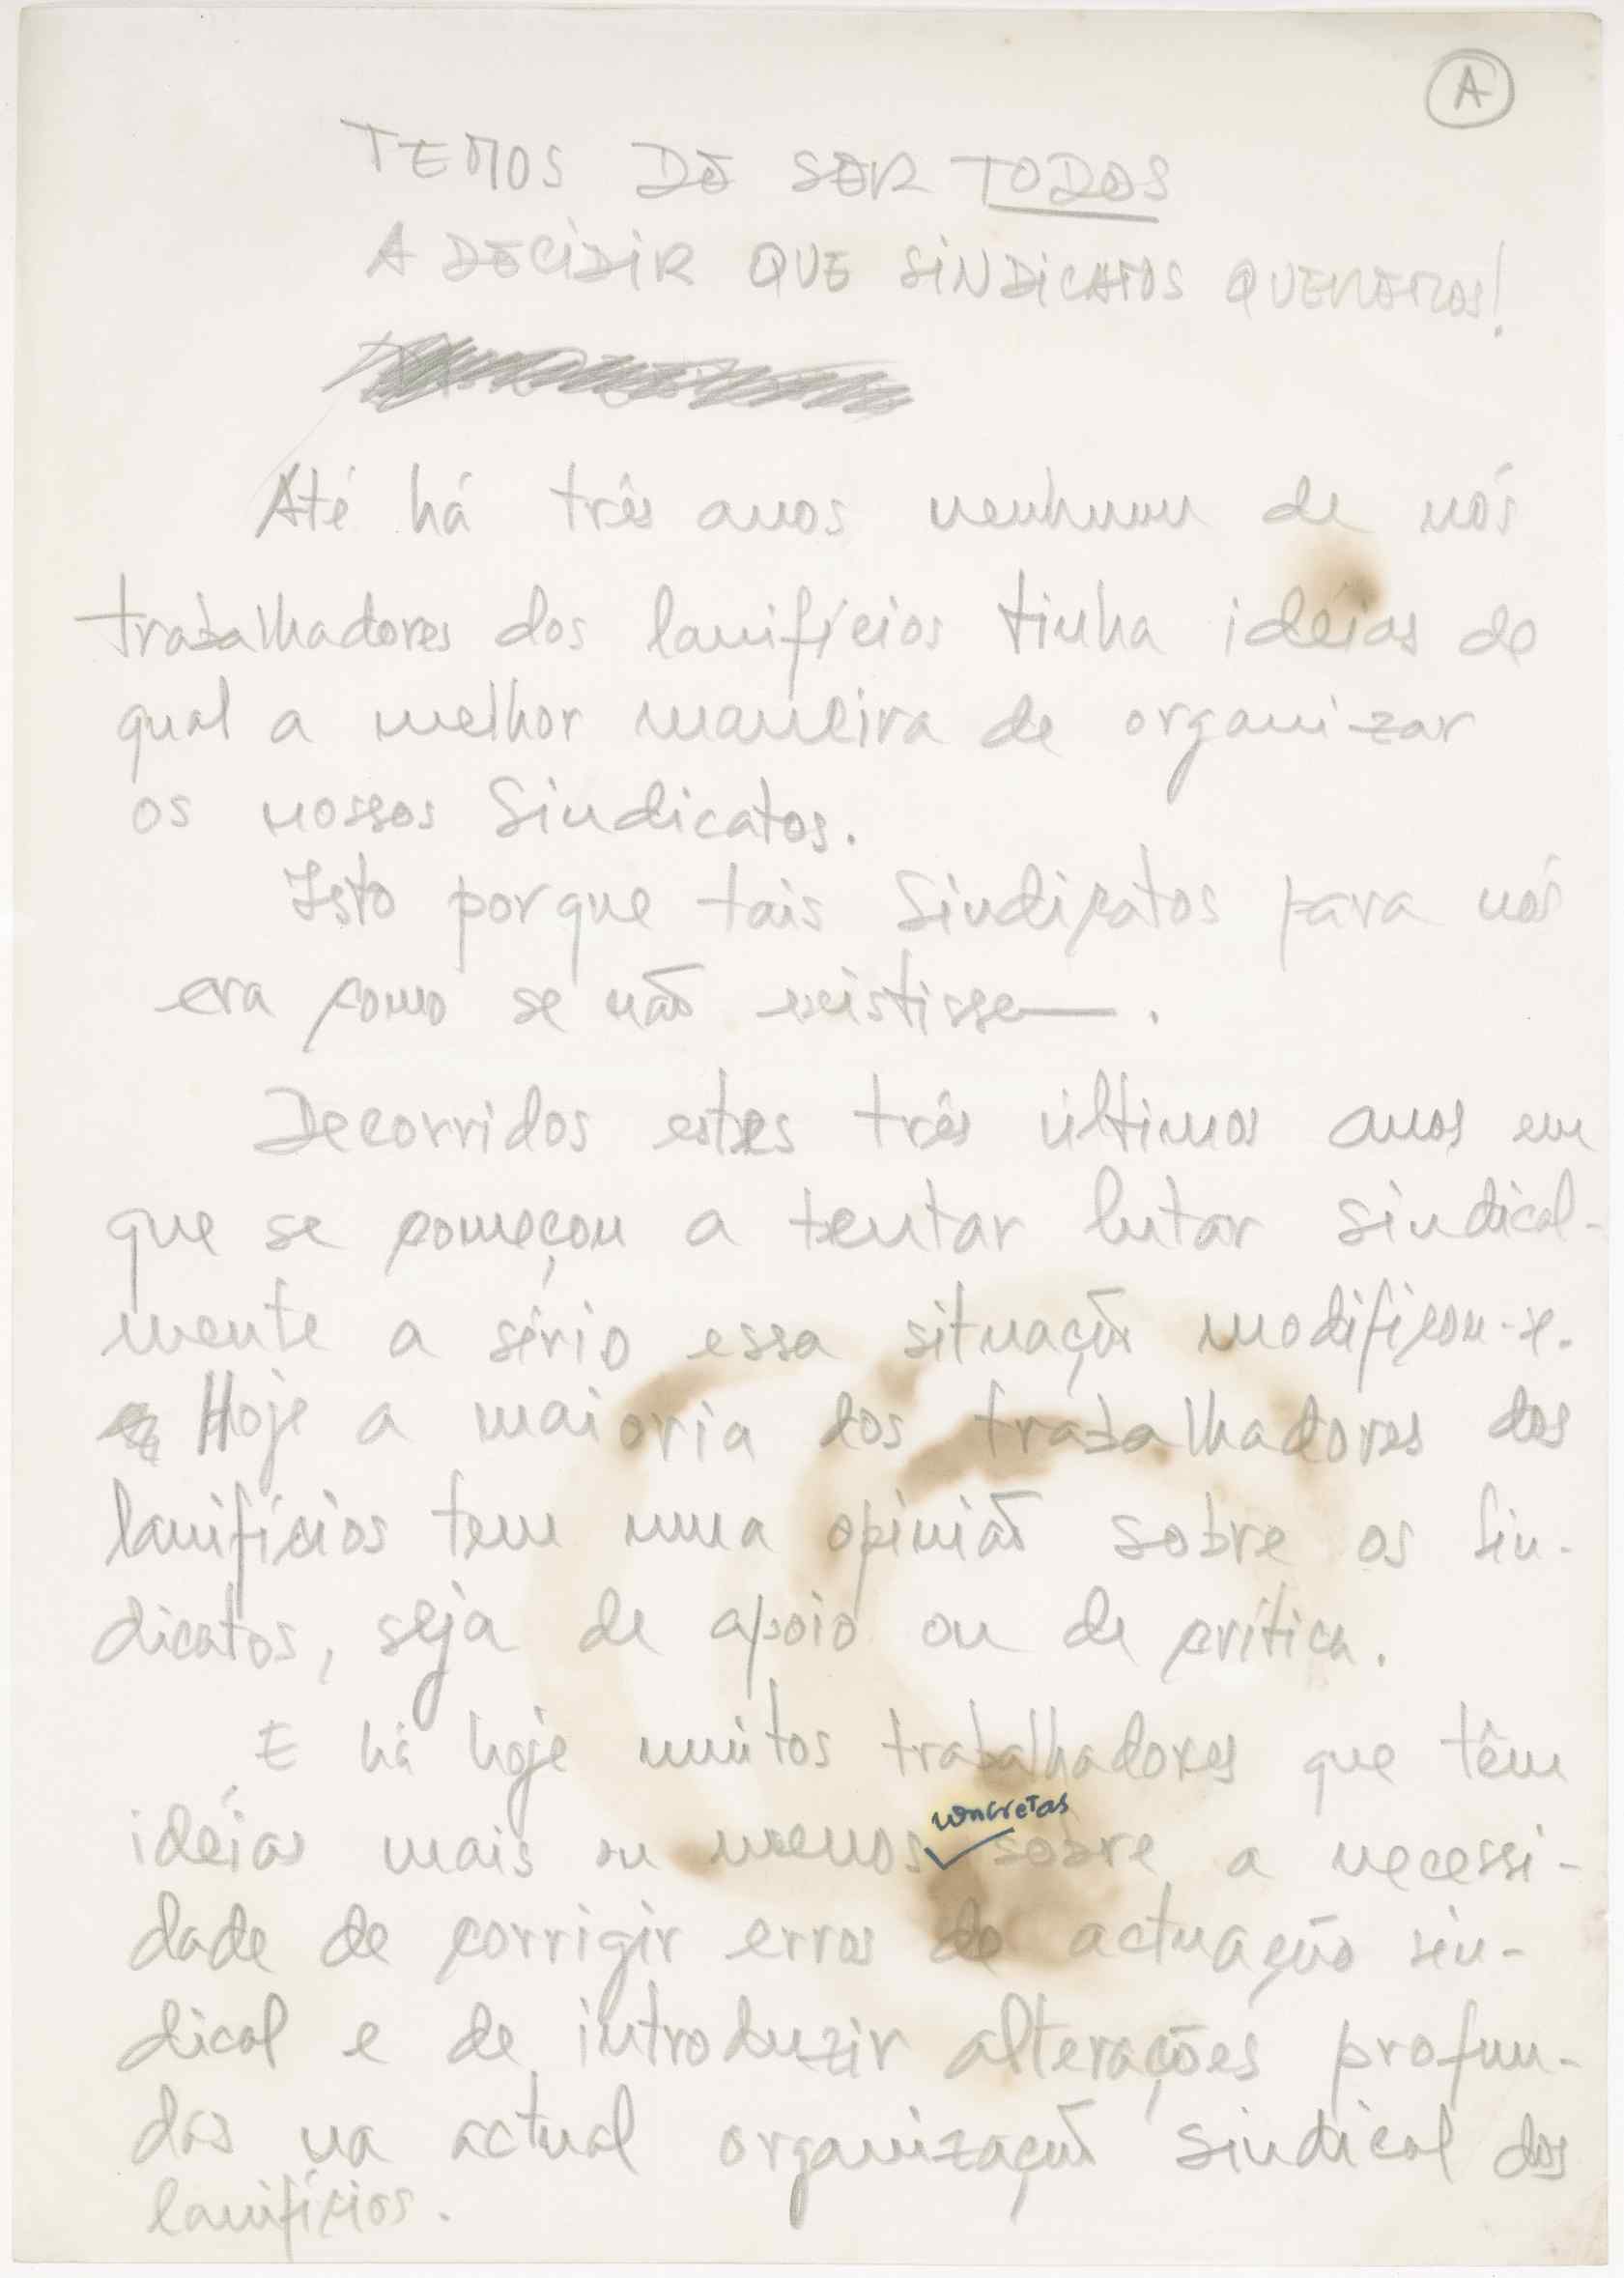 A
TEMOS DE SER TODOS
A DECIDIR QUE SINDICATOS QUEREMOS!
Até há três anos nenhum de nós
trabalhadores dos lanifícios tinha idéias de
qual a melhor maneira de organizar
os nossos Sindicatos.
Isto porque tais Sindicatos para nós
era como se não existissem.
Decorridos estes três últimos anos em
que se começou a tentar lutar sindical-
mente a sério essa situação modificou-se.
Hoje a maioria dos trabalhadores dos
lanifícios tem uma opinião sobre os Sin-
dicatos, seja de apoio ou de crítica.
E há hoje muitos trabalhadores que têm
concretas
idéias mais ou menos sobre a necessi-
dade de corrigir erros de actuação sin-
dical e de introduzir alterações profun-
das na actual organização sindical dos
lanifícios.